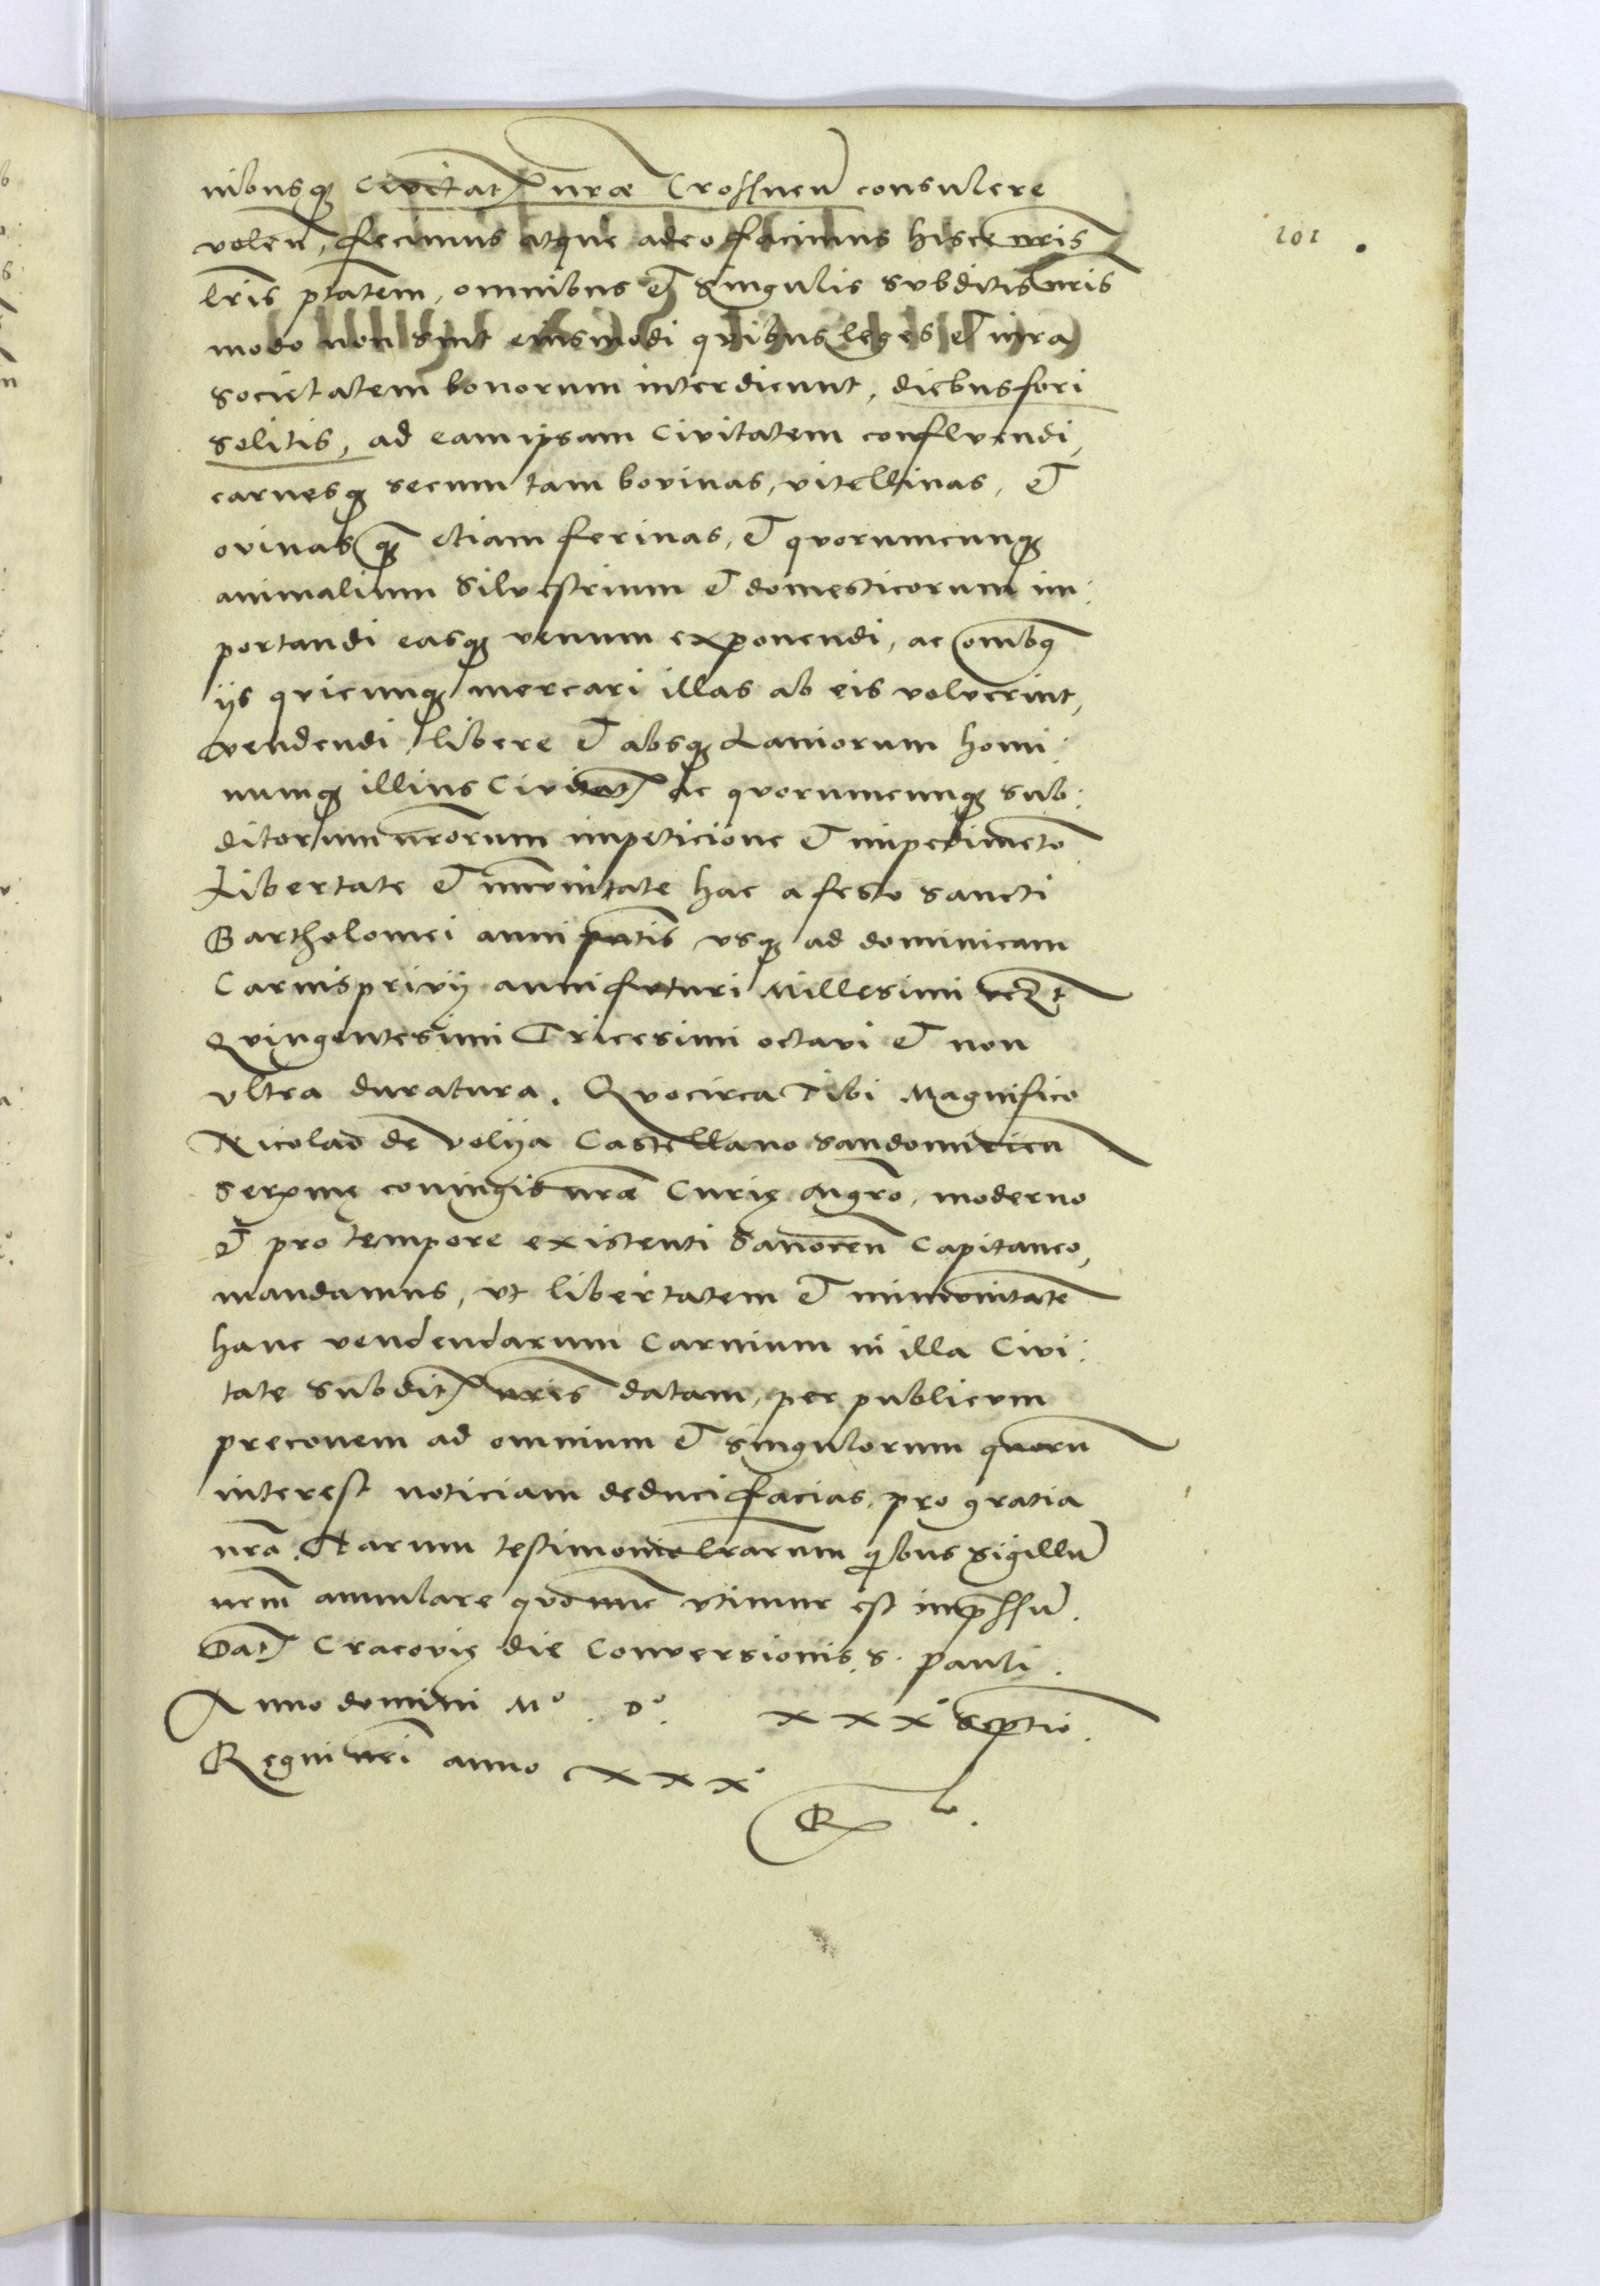 nibusq; Civitat. nrae Crossnen consulere
101
volen, fecimus atque adeo facimus hisce nris
lris ptatem, omnibus et singulis subditis nris
modo non sint eiusmodi quibus leges et iura
societatem bonorum interdicunt, diebus fori
solitis, ad eam ipsam Civitatem confluendi,
carnesq; secum tam bovinas, vitellinas, et
ovinas q etiam ferinas, et quorumcunq;
animalium Silvestrium et domesticorum im:
portandi easq; venum exponendi, ac omibq
ijs quicunq; mercari illas ab eis voluerint,
vendendi, libere et absq; Laniorum homi:
numq; illius Civitat. ac quorumcunq; sub:
ditorum nrorum impeticione et impedimeto
Libertate et imunitate hac a festo sancti
Bartholomei anni pntis vsq; ad dominicam
Carnisprivij anni futuri Millesimi
Quingentesimi Tricesimi octavi et non
vltra duratura. Quocirca Tibi Magnifico
Nicolao de Volija Castellano Sandomirien
Serxme coniugis nrae Curie Mgro, moderno
et pro tempore existenti Sanocen Capitaneo,
mandamus, vt libertatem et immunitate
hanc vendendarum Carnium in illa Civi:
tate Subdit. nris datam, per publicum
preconem ad omnium et singulorum quoru
interest noticiam deduci facias, pro gratia
nra. Harum testimonio lrarum quibus sigillu
nrm annulare quo nunc vtimur est impssu.
Dat. Cracovie die Conversionis. S. Pauli.
Anno domini M°. D°. XXX° Septio.
Regni nri anno XXX°